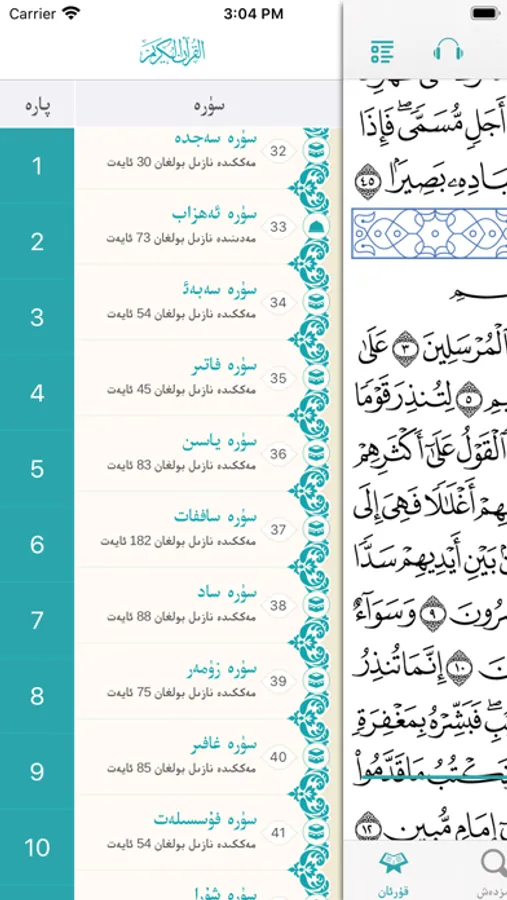 Carrier 3:04 PM
القرآن الكريم
پارە
سۈرە
1
2
3
4
5
6
7
8
9
10
سۈرە سەجدە
مەككىدە نازىل بولغان 30 ئايەت
32
سۈرە ئەھزاب
مەدىنىدە نازىل بولغان 73 ئايەت
33
سۈرە سەبەئ
مەككىدە نازىل بولغان 54 ئايەت
34
سۈرە فاتىر
مەككىدە نازىل بولغان 45 ئايەت
35
سۈرە ياسىن
مەككىدە نازىل بولغان 83 ئايەت
36
سۈرە ساففات
مەككىدە نازىل بولغان 182 ئايەت
37
سۈرە ساد
مەككىدە نازىل بولغان 88 ئايەت
38
سۈرە زۇمەر
مەككىدە نازىل بولغان 75 ئايەت
39
سۈرە غافىر
مەككىدە نازىل بولغان 85 ئايەت
40
سۈرە فۇسسىلەت
مەككىدە نازىل بولغان 54 ئايەت
41
سۈرە شۇرا
أَجَلٍ مُّسَمًّى ۖ فَإِذَا
بَصِيرًا ٤٥
الْمُرْسَلِينَ ٣ عَلَىٰ
٥ لِتُنذِرَ قَوْمًا
الْقَوْلُ عَلَىٰ أَكْثَرِهِمْ
أَغْلَالًا فَهِيَ إِلَى
بَيْنِ أَيْدِيهِمْ سَدًّا
٩ وَسَوَاءٌ
١٠ إِنَّمَا تُنذِرُ
فَبَشِّرْهُ بِمَغْفِرَةٍ
مَا قَدَّمُوا
إِمَامٍ مُّبِينٍ ١٢
قۇرئان